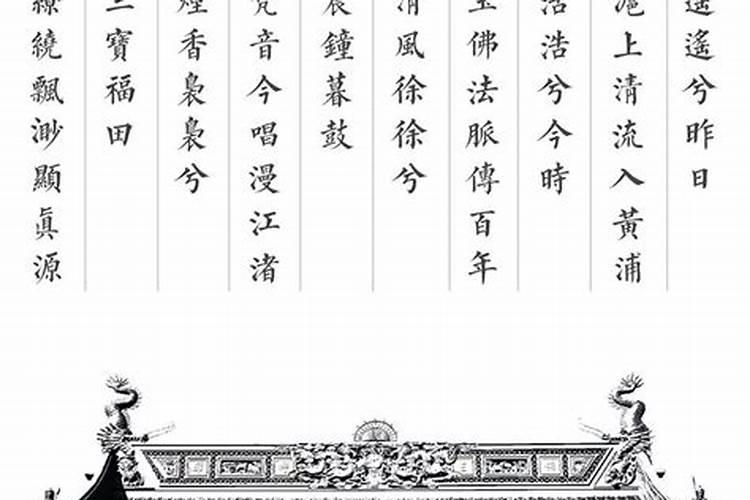 遙遙兮昨日
滬上清流入黃浦
浩浩兮今時
玉佛法脈傳百年
清風徐徐兮
晨鐘暮鼓
梵音今唱漫江渚
煙香裊裊兮
三寶福田
繚繞飄渺顯眞源